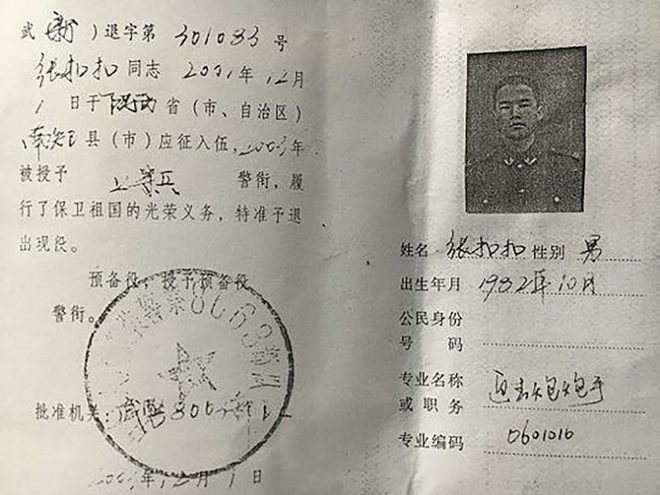 武（新）退字第 301083 号
张扣扣同志 2001年12月
1 日于陕西省（市、自治区）
南郑县（市）应征入伍，2003年
被授予 上等兵 警衔，履
行了保卫祖国的光荣义务，特准予退
出现役。
预备役，授予预备役
警衔。
批准机关：武警
2003年12月1日
8663
姓名 张扣扣 性别 男
出生年月 1982年10月
公民身份
号 码
专业名称
或职务 迫击炮炮手
专业编码 0601010